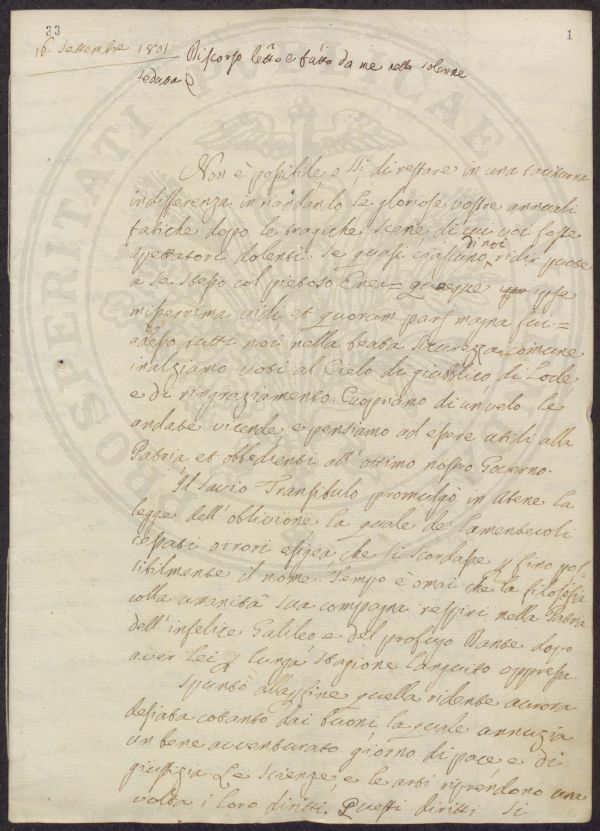 33
1
16. Settembre 1801
Discorso letto e fatto da me nella solenne
seduta
Non è possibile o SS.i di restare in una taciturna
indifferenza in riandando le gloriose vostre annuali
fatiche dopo le tragiche scene di cui voi foste
spettatori dolenti. Se quasi ciascuno di noi ridir puote
a se stesso col pietoso Enea = quaeque ipse
miserrima vidi et quorum pars magna fui =
adesso tutti noi nella beata sicurezza comune
inalziamo voti al Cielo di giubbilo di Lode
e di ringraziamento. Cuopriamo di un velo le
andate vicende e pensiamo ad essere utili alla
Patria et obbedienti all' ottimo nostro Governo.
Il savio Trasibulo promulgò in Atene la
legge dell' oblivione la quale de' lamentevoli
cessati orrori esigea che si scordasse p fino pos
sibilmente il nome. Tempo è omai che la filosofia
colla umanità sua compagna respiri nella Patria
dell' infelice Galileo e del profugo Dante dopo
aver lei p lunga stagione languito oppressa.
Spuntò alla fine quella ridente aurora
desiata cotanto dai buoni la quale annuzia
un bene avventurato giorno di pace e di
giustizia. Le Scienze e le arti riprendono una
volta i loro diritti. Questi diritti si
PROSPERITATI PUBLICAE